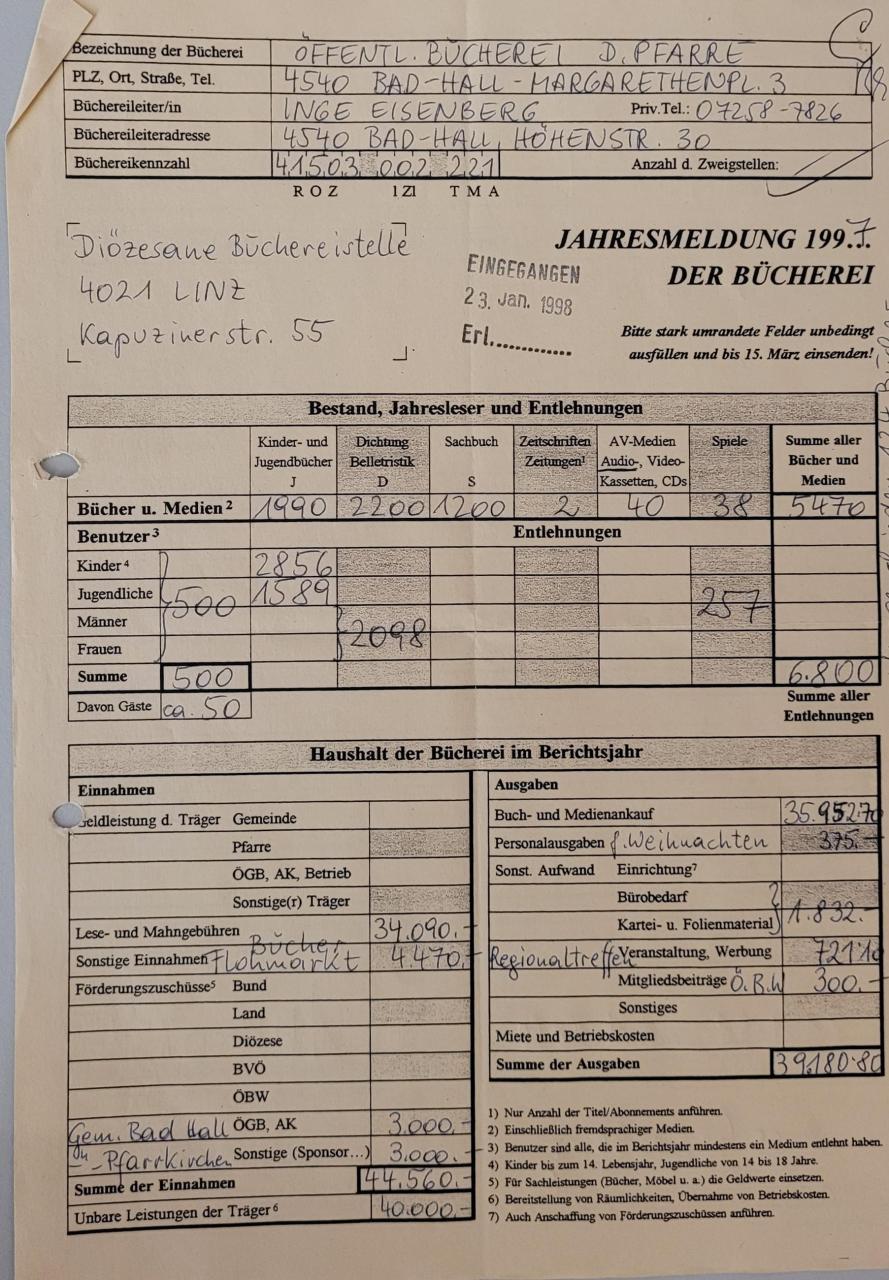 Bezeichnung der Bücherei ÖFFENTL. BÜCHEREI D. PFARRE
PLZ, Ort, Straße, Tel. 4540 BAD-HALL-MARGARETHENPL. 3
Büchereileiter/in INGE EISENBERG Priv.Tel.: 07258-7826
Büchereileiteradresse 4540 BAD-HALL, HÖHENSTR. 30
Büchereikennzahl 41503 002 221 Anzahl d. Zweigstellen:
R O Z IZI T M A
Diözesane Büchereistelle
4021 LINZ
Kapuzinerstr. 55
EINGEGANGEN
23. Jan. 1998
Erl.............
JAHRESMELDUNG 1997
DER BÜCHEREI
Bitte stark umrandete Felder unbedingt
ausfüllen und bis 15. März einsenden!
Bestand, Jahresleser und Entlehnungen
Kinder- und Dichtung Sachbuch Zeitschriften AV-Medien Spiele Summe aller
Jugendbücher Belletristik Zeitungen¹ Audio-, Video- Bücher und
J D S Kassetten, CDs Medien
Bücher u. Medien² 1990 2200 1200 2 40 38 5470
Benutzer³ Entlehnungen
Kinder⁴ 2856
Jugendliche 500 1589 257
Männer
2098
Frauen
Summe 500 6.800
Davon Gäste ca. 50 Summe aller
Entlehnungen
Haushalt der Bücherei im Berichtsjahr
Einnahmen
Geldleistung d. Träger Gemeinde
Pfarre
ÖGB, AK, Betrieb
Sonstige(r) Träger
Lese- und Mahngebühren 34.090.-
Sonstige Einnahmen Bücher Flohmarkt 4.470.-
Förderungszuschüsse⁵ Bund
Land
Diözese
BVÖ
ÖBW
Gem. Bad Hall ÖGB, AK 3.000.-
-"- Pfarrkirchen Sonstige (Sponsor...) 3.000.-
Summe der Einnahmen 44.560.-
Unbare Leistungen der Träger⁶ 40.000.-
Ausgaben
Buch- und Medienankauf 35.952.70
Personalausgaben f. Weihnachten 375.-
Sonst. Aufwand Einrichtung⁷
Bürobedarf
Kartei- u. Folienmaterial 1.832.-
Regionaltreffen Veranstaltung, Werbung 721.10
Mitgliedsbeiträge Ö.B.W 300.-
Sonstiges
Miete und Betriebskosten
Summe der Ausgaben 39.180.80
1) Nur Anzahl der Titel/Abonnements anführen.
2) Einschließlich fremdsprachiger Medien.
3) Benutzer sind alle, die im Berichtsjahr mindestens ein Medium entlehnt haben.
4) Kinder bis zum 14. Lebensjahr, Jugendliche von 14 bis 18 Jahre.
5) Für Sachleistungen (Bücher, Möbel u. a.) die Geldwerte einsetzen.
6) Bereitstellung von Räumlichkeiten, Übernahme von Betriebskosten.
7) Auch Anschaffung von Förderungszuschüssen anführen.